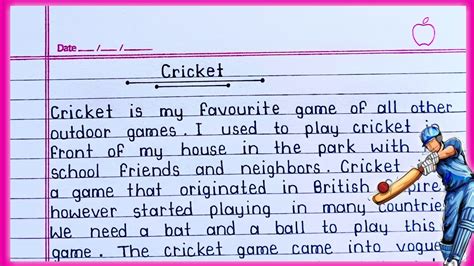 Date __/__/__
Cricket
Cricket is my favourite game of all other
outdoor games. I used to play cricket
front of my house in the park with
school friends and neighbors. Cricket
a game that originated in British
however started playing in many countrie
We need a bat and a ball to play this
game. The cricket game came into vogue